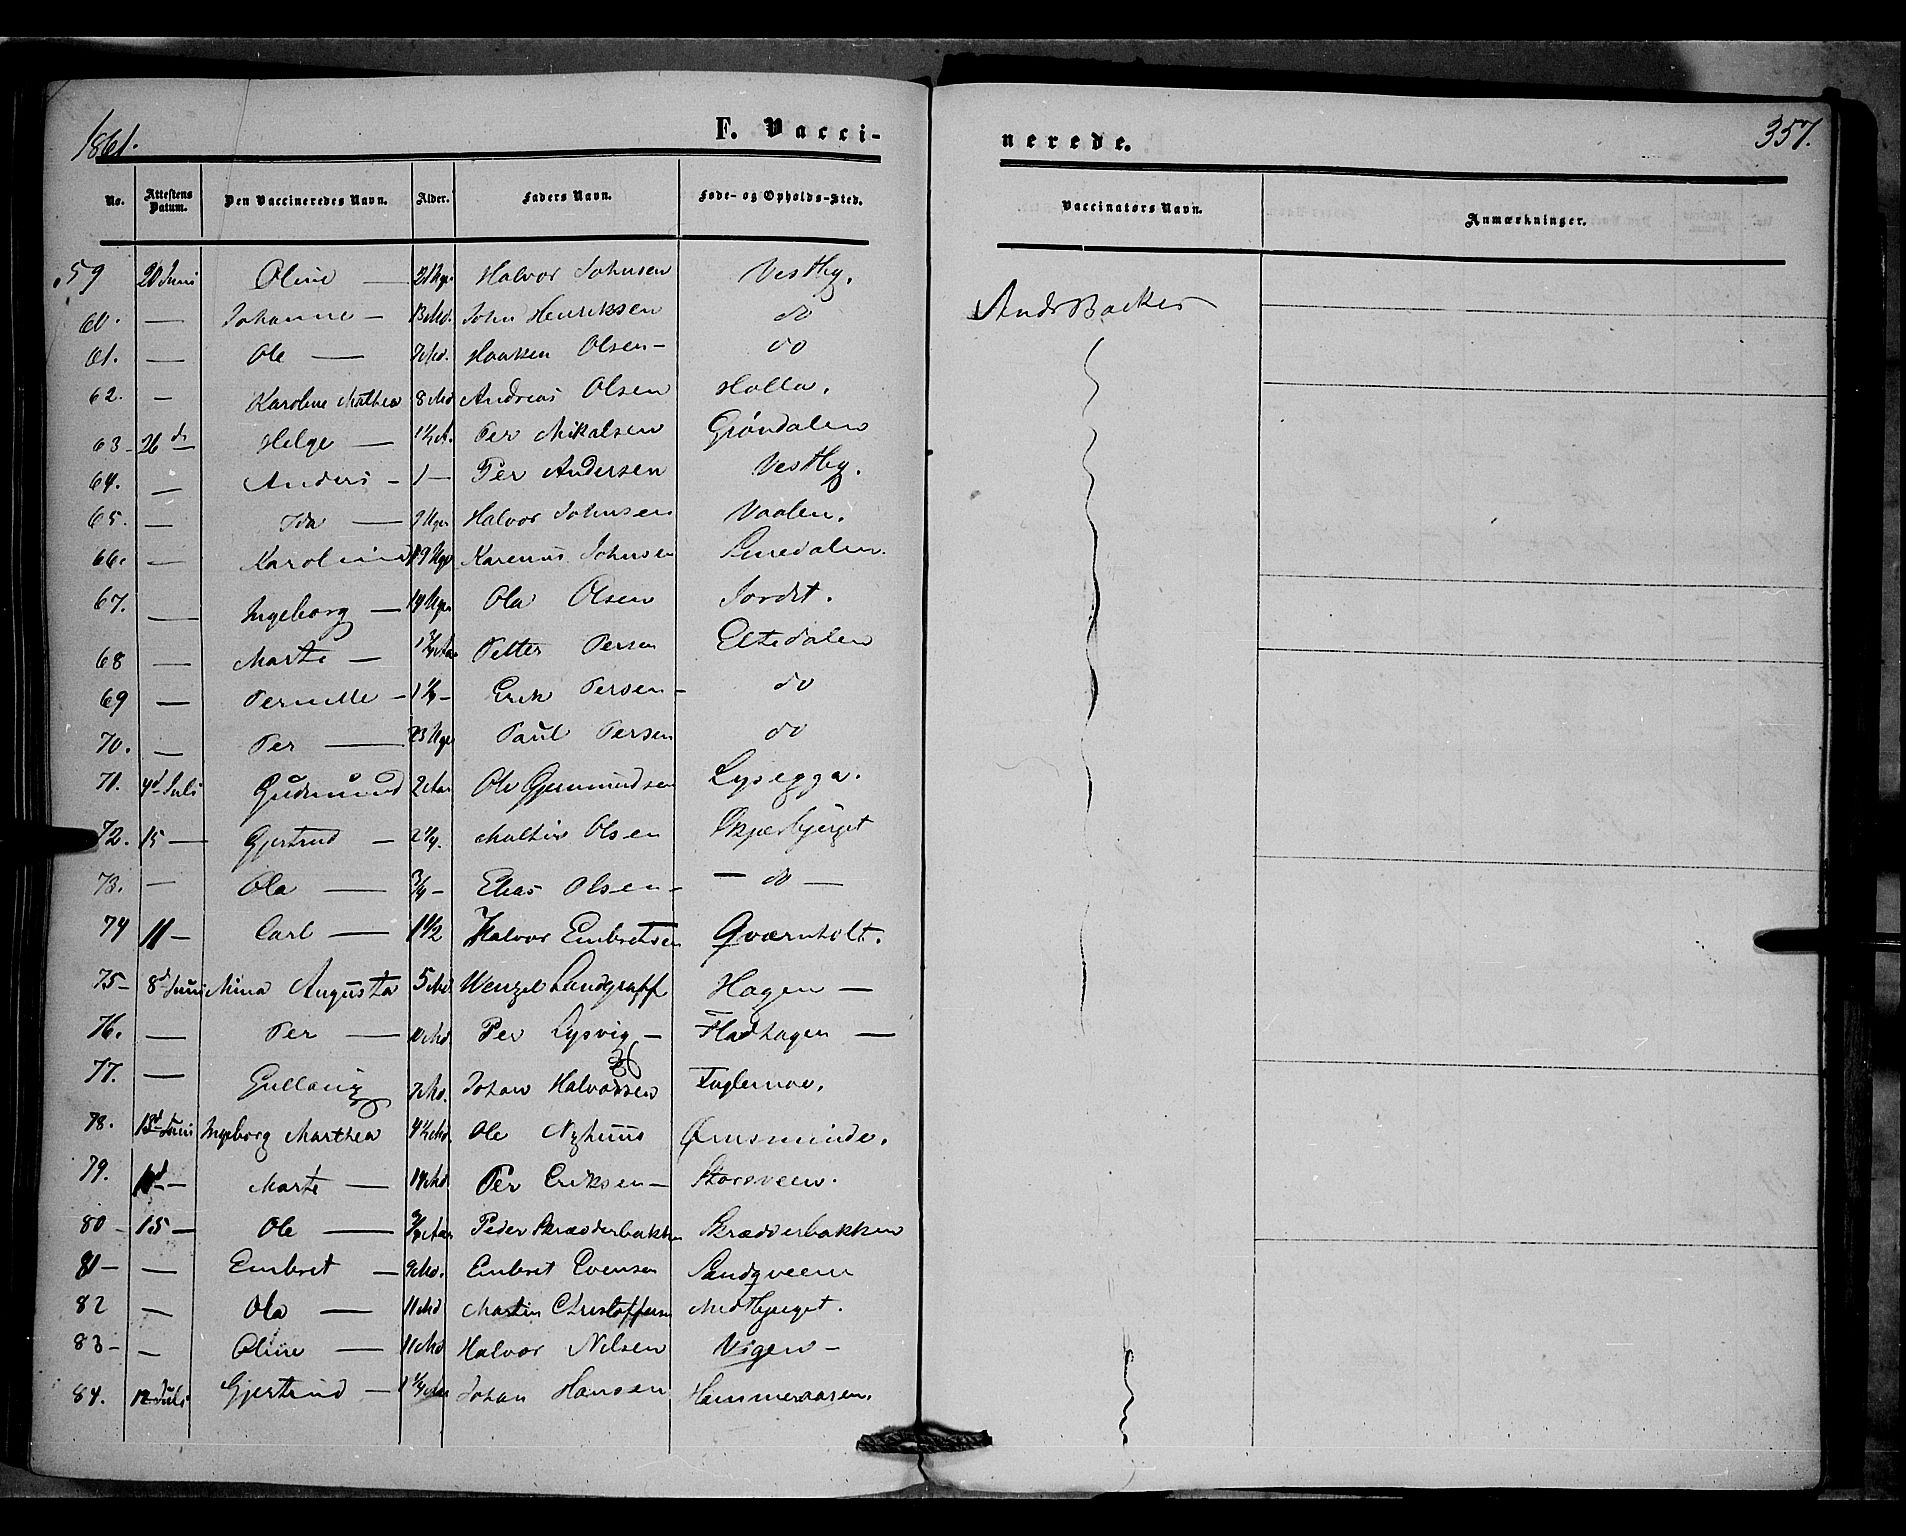 1861.
F. Vacci-
nerede.
357.
No. Attestens Datum. Den Vaccineredes Navn. Alder. Faders Navn. Føde- og Opholds-Sted. Vaccinators Navn. Anmærkninger.
59 20 Juni Oline — 21 Uger Halvor Johnsen Vestby. Andr Backer
60. — Johanne — 13 Md. John Henriksen do
61. — Ole — 7 Md. Haaken Olsen — do
62. — Karoline Mathea 8 Md Andreas Olsen Holla.
63 — 26 d — Helge — 1½ A. Per Mikalsen Grøndalen
64. — Anders — 1 — Per Andersen Vestby.
65. — Ida — 9 Uger Halvor Johnsen Vaalen.
66. — Karoline 19 Uger Karenus Johnsen
67. — Ingeborg — 14 Uger Ola Olsen Jordet.
68 — Marte — 1¾ Aar Petter Persen Eltedalen
69 — Pernille — Erik Persen — do
70. — Per — 23 Uger Paul Persen do
71. 4d Juli Gudmund 2 Aar Ole Gjermundsen Lysegga.
72. 15 — Gjertrud — 2¼. Olsen Skjærbjerget
73. — Ola — ¾ — Elias Olsen — — do —
74 11 — Carl — 1½ Halvor Embretsen Qværnholt.
75 — 8d Juni Mina Augusta 5 Md Wenzel Landgraff Hagen —
76. — Per — 10 Md. Per Lysvig — Fladhagen —
77. — Gullaug 7 Md. Johan Halvorsen Fuglemoe.
78. 13d Juni Ingeborg Marthea 4½ Md. Ole Nyhuus Ørnsminde.
79. — Marte — 14 Md. Per Eriksen — Storsveen.
80 — 15 — Ole — ¾ Aar Peder Skrædderbakken Skrædderbakken
81 — — Embret — 9 Md. Embret Evensen Sandqveen
82 — Ola — 11 Md Martin Christoffersen Midtbjerget.
83 — — Oline — 11 Md Halvor Nilsen Vigen —
84. 12 Juli Gjertrud — 1¼ Aar Johan Hansen Hammeraasen.